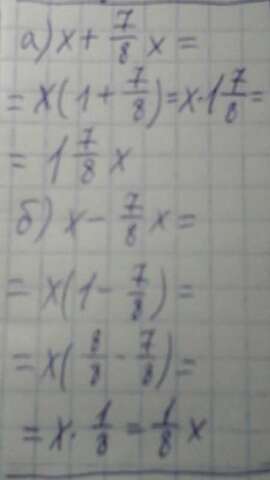 а) x + 7/8 x =
= x(1 + 7/8) = x · 1 7/8 =
= 1 7/8 x
б) x - 7/8 x =
= x(1 - 7/8) =
= x(8/8 - 7/8) =
= x · 1/8 = 1/8 x